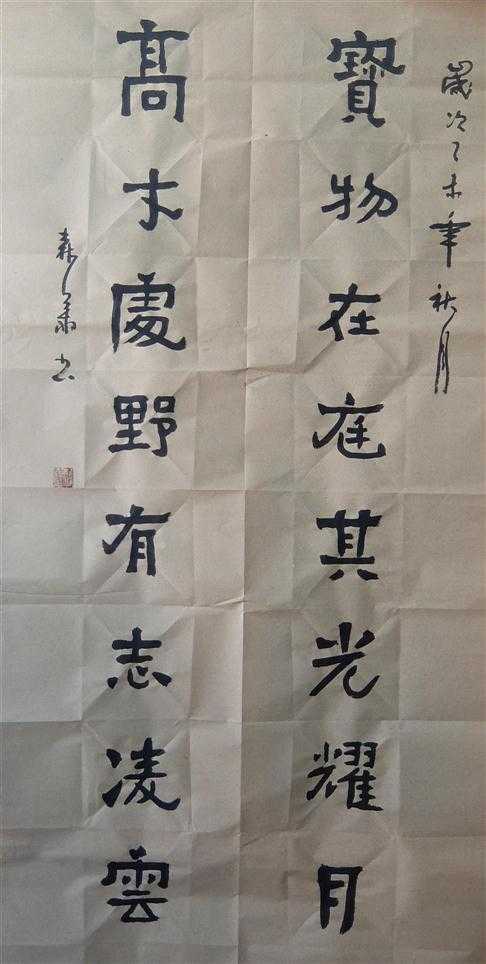 歲次乙未年秋月
寶物在庭其光耀月
髙才處野有志凌雲
书